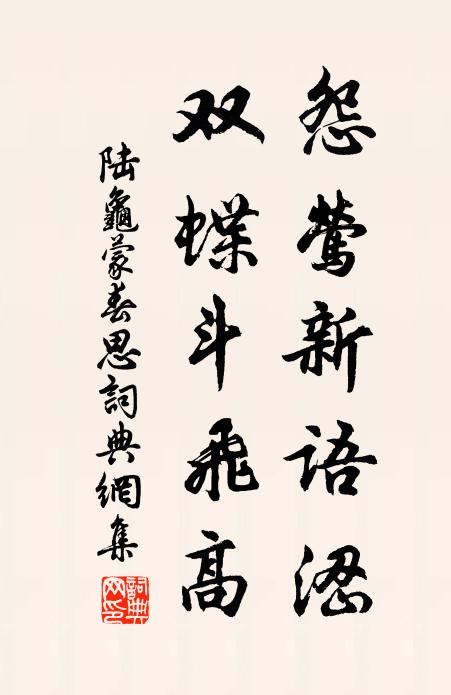 怨鶯新語涩
双蝶斗飛高
陆龜蒙春思詞典網集
詞典网印